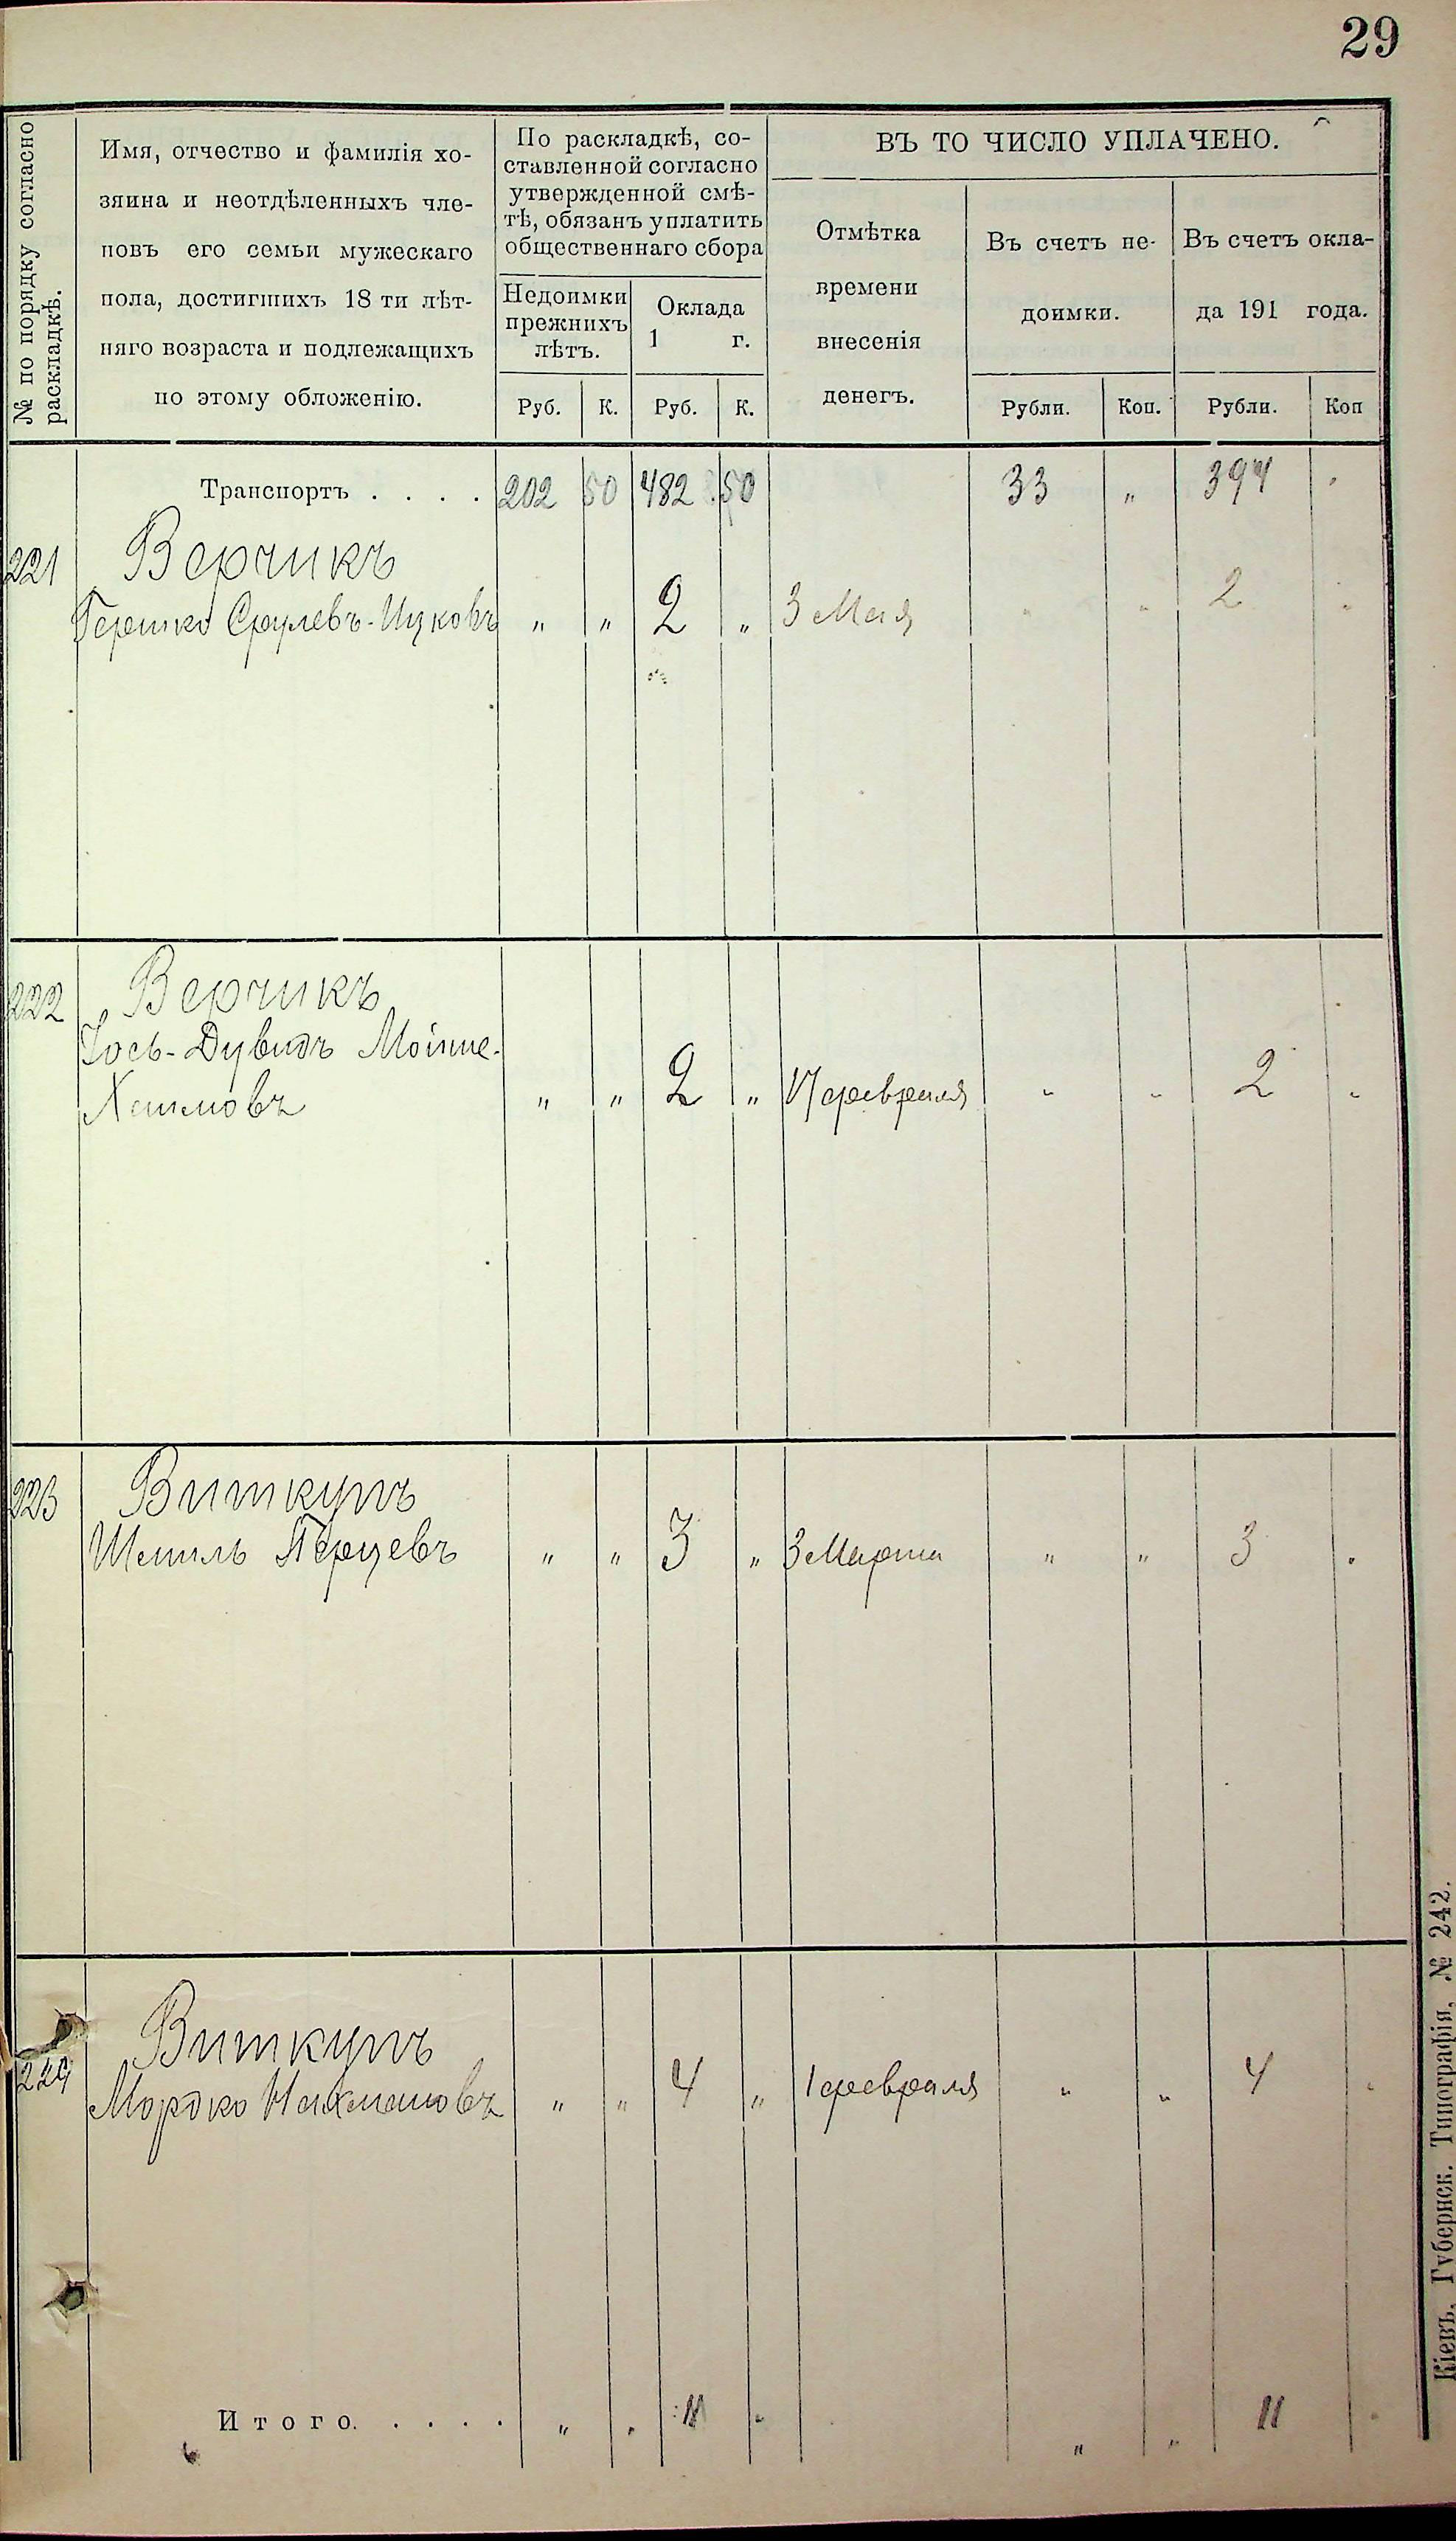 29
№ по порядку согласно
раскладкѣ.
Имя, отчество и фамилія хо-
зяина и неотдѣленныхъ чле-
новъ его семьи мужескаго
пола, достигшихъ 18 ти лѣт-
няго возраста и подлежащихъ
по этому обложенію.
По раскладкѣ, со-
ставленной согласно
утвержденной смѣ-
тѣ, обязанъ уплатить
общественнаго сбора
Недоимки
прежнихъ
лѣтъ.
Оклада
1 г.
Руб. К. Руб. К.
ВЪ ТО ЧИСЛО УПЛАЧЕНО.
Отмѣтка
времени
внесенія
денегъ.
Въ счетъ не-
доимки.
Въ счетъ окла-
да 191 года.
Рубли. Коп. Рубли. Коп
Транспортъ . . . . 202 50 482 50 33 „ 394 „
221 Верчикъ
Гершко Срулевъ-Ицковъ „ „ 2 „ 3 Мая „ „ 2 „
222 Верчикъ
Іось-Дувидъ Мойше-
Хаимовъ „ „ 2 „ 17 февраля „ „ 2 „
223 Виткупъ
Шмиль Перцевъ „ „ 3 „ 3 Марта „ „ 3 „
224 Виткупъ
Мордко Нахмановъ „ „ 4 „ 1 февраля „ „ 4 „
Итого. . . . . „ „ 11 „ „ „ 11 „
Кіевъ. Губернск. Типографія, № 242.